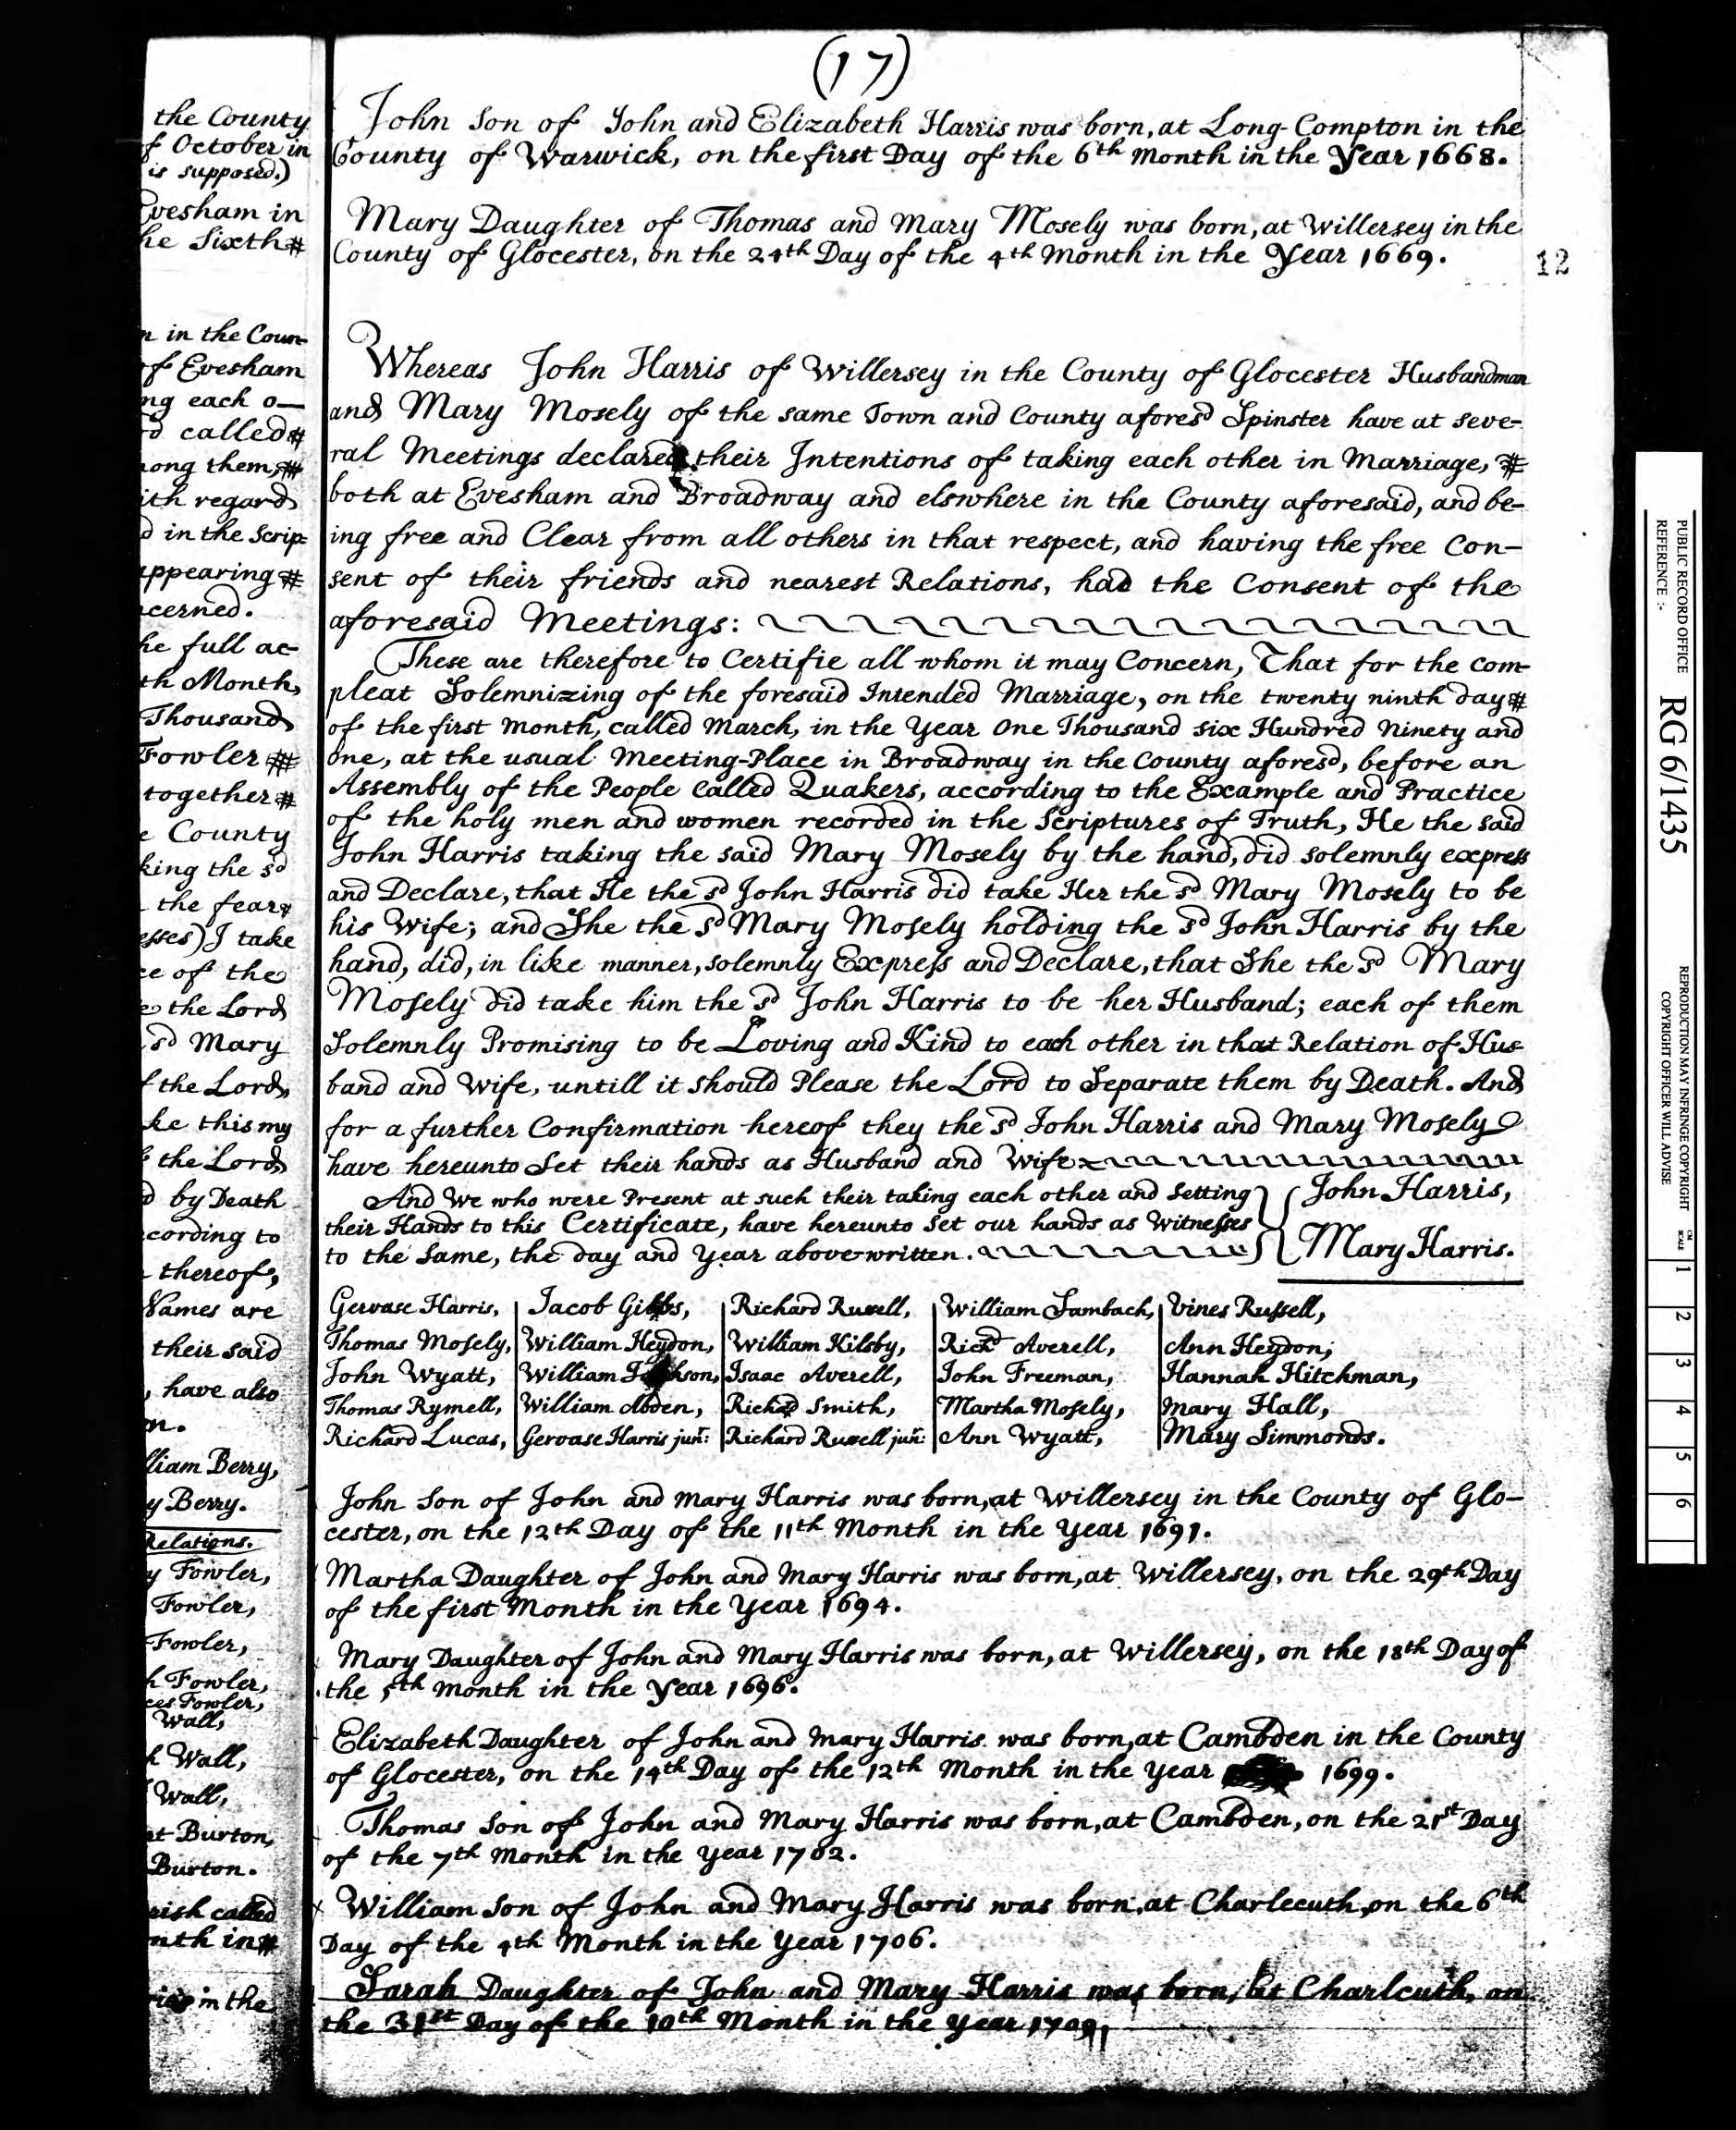 (17)
the County
f October in
is supposed.)
Evesham in
he Sixth
n in the Coun-
of Evesham
ng each o
d called
mong them,
ith regard
d in the Scrip=
appearing
ncerned.
he full ac-
th Month,
Thousand
Fowler
together
e County
king the sd
the fear
esses) I take
ce of the
e the Lord
sd Mary
f the Lord,
ke this my
the Lord
d by Death
ccording to
thereof,
Names are
their said
, have also
n.
lliam Berry,
y Berry.
Relations.
y Fowler,
Fowler,
Fowler,
h Fowler,
ces Fowler,
Wall,
h Wall,
Wall,
Burton,
Burton.
rish called
nth in
in the
John Son of John and Elizabeth Harris was born, at Long-Compton in the
County of Warwick, on the first Day of the 6th Month in the Year 1668.
Mary Daughter of Thomas and Mary Mosely was born, at Willersey in the
County of Glocester, on the 24th Day of the 4th Month in the Year 1669.
12
Whereas John Harris of Willersey in the County of Glocester Husbandman
and Mary Mosely of the same Town and County aforesd Spinster have at seve-
ral Meetings declared their Intentions of taking each other in Marriage,
both at Evesham and Broadway and elswhere in the County aforesaid, and be-
ing free and Clear from all others in that respect, and having the free Con-
sent of their friends and nearest Relations, had the Consent of the
aforesaid Meetings:
These are therefore to Certifie all whom it may Concern, That for the com-
pleat Solemnizing of the foresaid Intended Marriage, on the twenty ninth day
of the first Month, called March, in the Year One Thousand Six Hundred Ninety and
One, at the usual Meeting-Place in Broadway in the County aforesd, before an
Assembly of the People called Quakers, according to the Example and Practice
of the holy men and women recorded in the Scriptures of Truth, He the said
John Harris taking the said Mary Mosely by the hand, did solemnly express
and Declare, that He the sd John Harris did take Her the sd Mary Mosely to be
his Wife; and She the sd Mary Mosely holding the sd John Harris by the
hand, did, in like manner, solemnly Express and Declare, that She the sd Mary
Mosely did take him the sd John Harris to be her Husband; each of them
Solemnly Promising to be Loving and Kind to each other in that Relation of Hus-
band and Wife, untill it should Please the Lord to Separate them by Death. And
for a further Confirmation hereof they the sd John Harris and Mary Mosely
have hereunto Set their hands as Husband and Wife
And We who were Present at such their taking each other and Setting
their Hands to this Certificate, have hereunto Set our hands as Witnesses
to the Same, the day and Year above-written.
John Harris,
Mary Harris.
Gervase Harris, Jacob Gibbs, Richard Russell, William Sambach, Vines Russell,
Thomas Mosely, William Heydon, William Kilsby, Richd Averell, Ann Heydon,
John Wyatt, William Isaac Averell, John Freeman, Hannah Hitchman,
Thomas Rymell, William Abden, Richard Smith, Martha Mosely, Mary Hall,
Richard Lucas, Gervase Harris junr: Richard Russell junr: Ann Wyatt, Mary Simmonds.
John Son of John and Mary Harris was born, at Willersey in the County of Glo-
cester, on the 12th Day of the 11th Month in the Year 1691.
Martha Daughter of John and Mary Harris was born, at Willersey, on the 29th Day
of the first Month in the Year 1694.
Mary Daughter of John and Mary Harris was born, at Willersey, on the 18th Day of
the 5th Month in the Year 1696.
Elizabeth Daughter of John and Mary Harris was born, at Cambden in the County
of Glocester, on the 14th Day of the 12th Month in the Year 1699.
Thomas Son of John and Mary Harris was born, at Cambden, on the 21st Day
of the 7th Month in the Year 1702.
William Son of John and Mary Harris was born, at Charlecuth, on the 6th
Day of the 4th Month in the Year 1706.
Sarah Daughter of John and Mary Harris was born, at Charlcuth, on
the 31st Day of the 10th Month in the Year 1709
PUBLIC RECORD OFFICE
REFERENCE :-
RG 6/1435
REPRODUCTION MAY INFRINGE COPYRIGHT
COPYRIGHT OFFICER WILL ADVISE
CM
SCALE
1
2
3
4
5
6